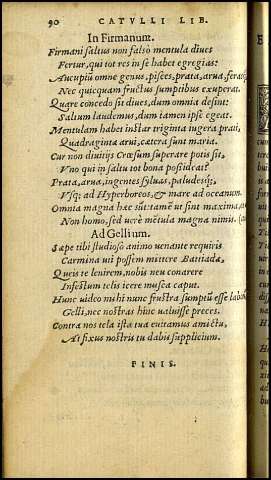 90 CATVLLI LIB.
In Firmanum.
Firmani saltus non falso mentula diues
Fertur, qui tot res in se habet egregias:
Aucupiũ omne genus, pisces, prata, arua, feras
Nec quicquam fructus sumptibus exuperat.
Quare concedo sit diues, dum omnia desint:
Saltum laudemus, dum tamen ipse egeat.
Mentulam habet instar triginta iugera prati,
Quadraginta arui, cætera sunt maria.
Cur non diuitijs Crœsum superare potis sit,
Vno qui in saltu tot bona possideat?
Prata, arua, ingentes syluas, paludesq́;
Vsq; ad Hyperboreos, & mare ad oceanum.
Omnia magna hæc sũt
Non homo, sed uere mẽtula magna nimis.
Ad Gellium.
Sæpe tibi studioso animo uenante requiris
Carmina uti possem mittere Battiadæ,
Queis te lenirem, nobis neu conarere
Infestum telis icere musca caput.
Hunc uideo mihi nunc frustra sumptũ esse
Gelli, nec nostras hinc ualuisse preces.
Contra nos tela ista tua euitamus amictu,
At fixus nostris tu dabis supplicium.
FINIS.